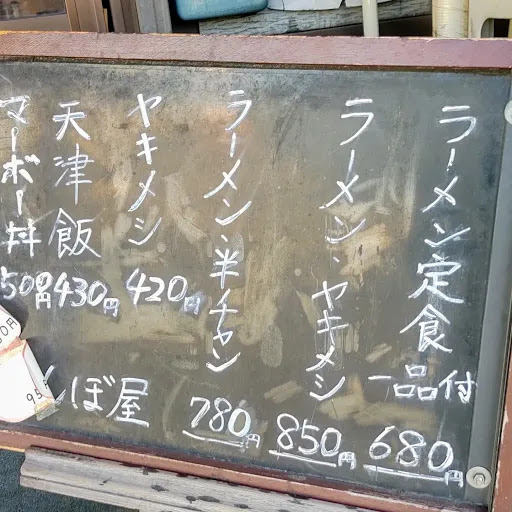 ラーメン定食
一品付
680円
ラーメン・ヤキメシ
850円
ラーメン・半チャン
780円
ヤキメシ
420円
天津飯
430円
マーボー丼
500円
んぼ屋